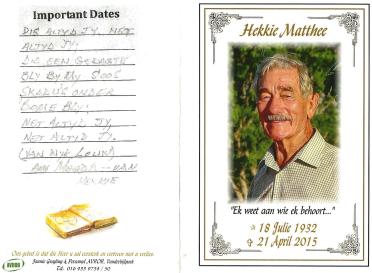 Important Dates
DIS ALTYD JY, NET
ALTYD JY,
DIE EEN GEDAGTE
BLY BY MY SOOS
SKADUS ONDER
BOME BLY,
NET ALTYD JY,
NET ALTYD JY.
(VAN WYK LOUW)
VAN
Ons gebed is dat die Here u sal vertroos en vertrou met u verlies
AVBOB
Hekkie Matthee
"Ek weet aan wie ek behoort..."
18 Julie 1932
21 April 2015